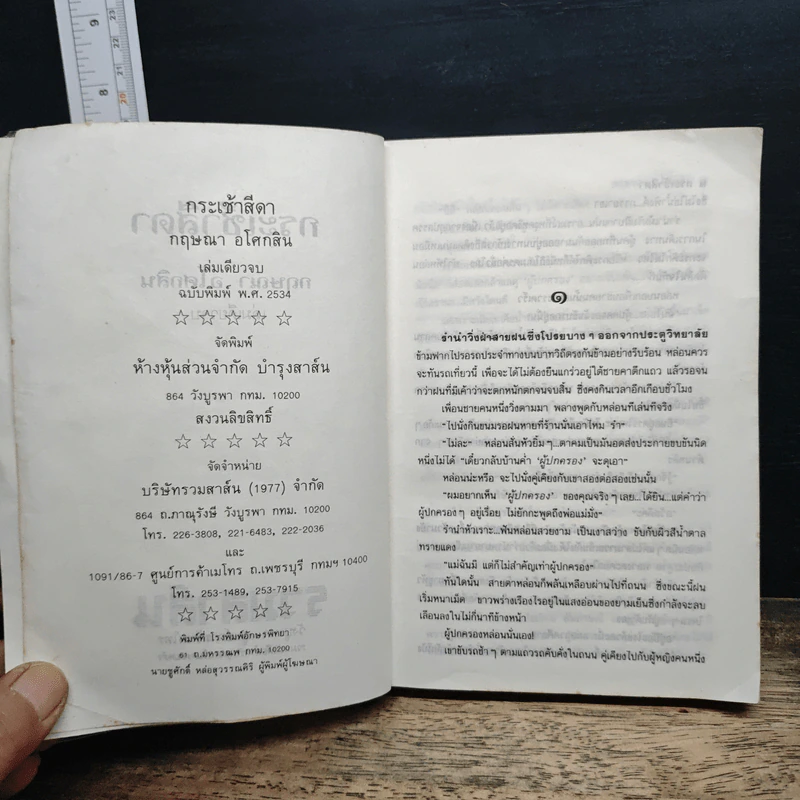 กระเช้าสีดา
กฤษณา อโศกสิน
เล่มเดียวจบ
ฉบับพิมพ์ พ.ศ. 2534
☆ ☆ ☆ ☆ ☆
จัดพิมพ์
ห้างหุ้นส่วนจำกัด บำรุงสาส์น
864 วังบูรพา กทม. 10200
สงวนลิขสิทธิ์
☆ ☆ ☆ ☆ ☆
จัดจำหน่าย
บริษัทรวมสาส์น (1977) จำกัด
864 ถ.ภาณุรังษี วังบูรพา กทม. 10200
โทร. 226-3808, 221-6483, 222-2036
และ
1091/86-7 ศูนย์การค้าเมโทร ถ.เพชรบุรี กทมฯ 10400
โทร. 253-1489, 253-7915
☆ ☆ ☆ ☆ ☆
พิมพ์ที่ โรงพิมพ์อักษรพิทยา
61 ถ.มหรรณพ กทม. 10200
นายชูศักดิ์ หล่อสุวรรณศิริ ผู้พิมพ์ผู้โฆษณา
๑
รำนำวิ่งฝ่าสายฝนซึ่งโปรยบาง ๆ ออกจากประตูวิทยาลัย
ข้ามฟากไปรอรถประจำทางบนบาทวิถีตรงกันข้ามอย่างรีบร้อน หล่อนควร
จะทันรถเที่ยวนี้ เพื่อจะได้ไม่ต้องยืนแกร่วอยู่ใต้ชายคาตึกแถว แล้วรอจน
กว่าฝนที่มีเค้าว่าจะตกหนักตกจนจบสิ้น ซึ่งคงกินเวลาอีกเกือบชั่วโมง
เพื่อนชายคนหนึ่งวิ่งตามมา พลางพูดกับหล่อนทีเล่นทีจริง
"ไปนั่งกินขนมรอฝนหายที่ร้านนั่นเอาไหม รำ"
"ไม่ละ" หล่อนสั่นหัวยิ้มๆ...ตาคมเป็นมันอดส่งประกายขบขันนิด
หนึ่งไม่ได้ "เดี๋ยวกลับบ้านค่ำ 'ผู้ปกครอง' จะดุเอา"
หล่อนน่ะหรือ จะไปนั่งคู่เคียงกับเขาสองต่อสองเช่นนั้น
"ผมอยากเห็น 'ผู้ปกครอง' ของคุณจริงๆ เลย...ได้ยิน...แต่คำว่า
ผู้ปกครองๆ อยู่เรื่อย ไม่ยักกะพูดถึงพ่อแม่มั่ง"
รำนำหัวเราะ...ฟันหล่อนสวยงาม เป็นเงาสว่าง ขับกับผิวสีน้ำตาล
ทรายแดง
"แม่ฉันมี แต่ก็ไม่สำคัญเท่าผู้ปกครอง"
ทันใดนั้น สายตาหล่อนก็พลันเหลือบผ่านไปที่ถนน ซึ่งขณะนี้ฝน
เริ่มหนาเม็ด ขาวพร่างเรืองไรอยู่ในแสงอ่อนของยามเย็นซึ่งกำลังจะลบ
เลือนลงในไม่กี่นาทีข้างหน้า
ผู้ปกครองหล่อนนั่นเอง!
เขาขับรถช้าๆ ตามแถวรถคับคั่งในถนน คู่เคียงไปกับผู้หญิงคนหนึ่ง